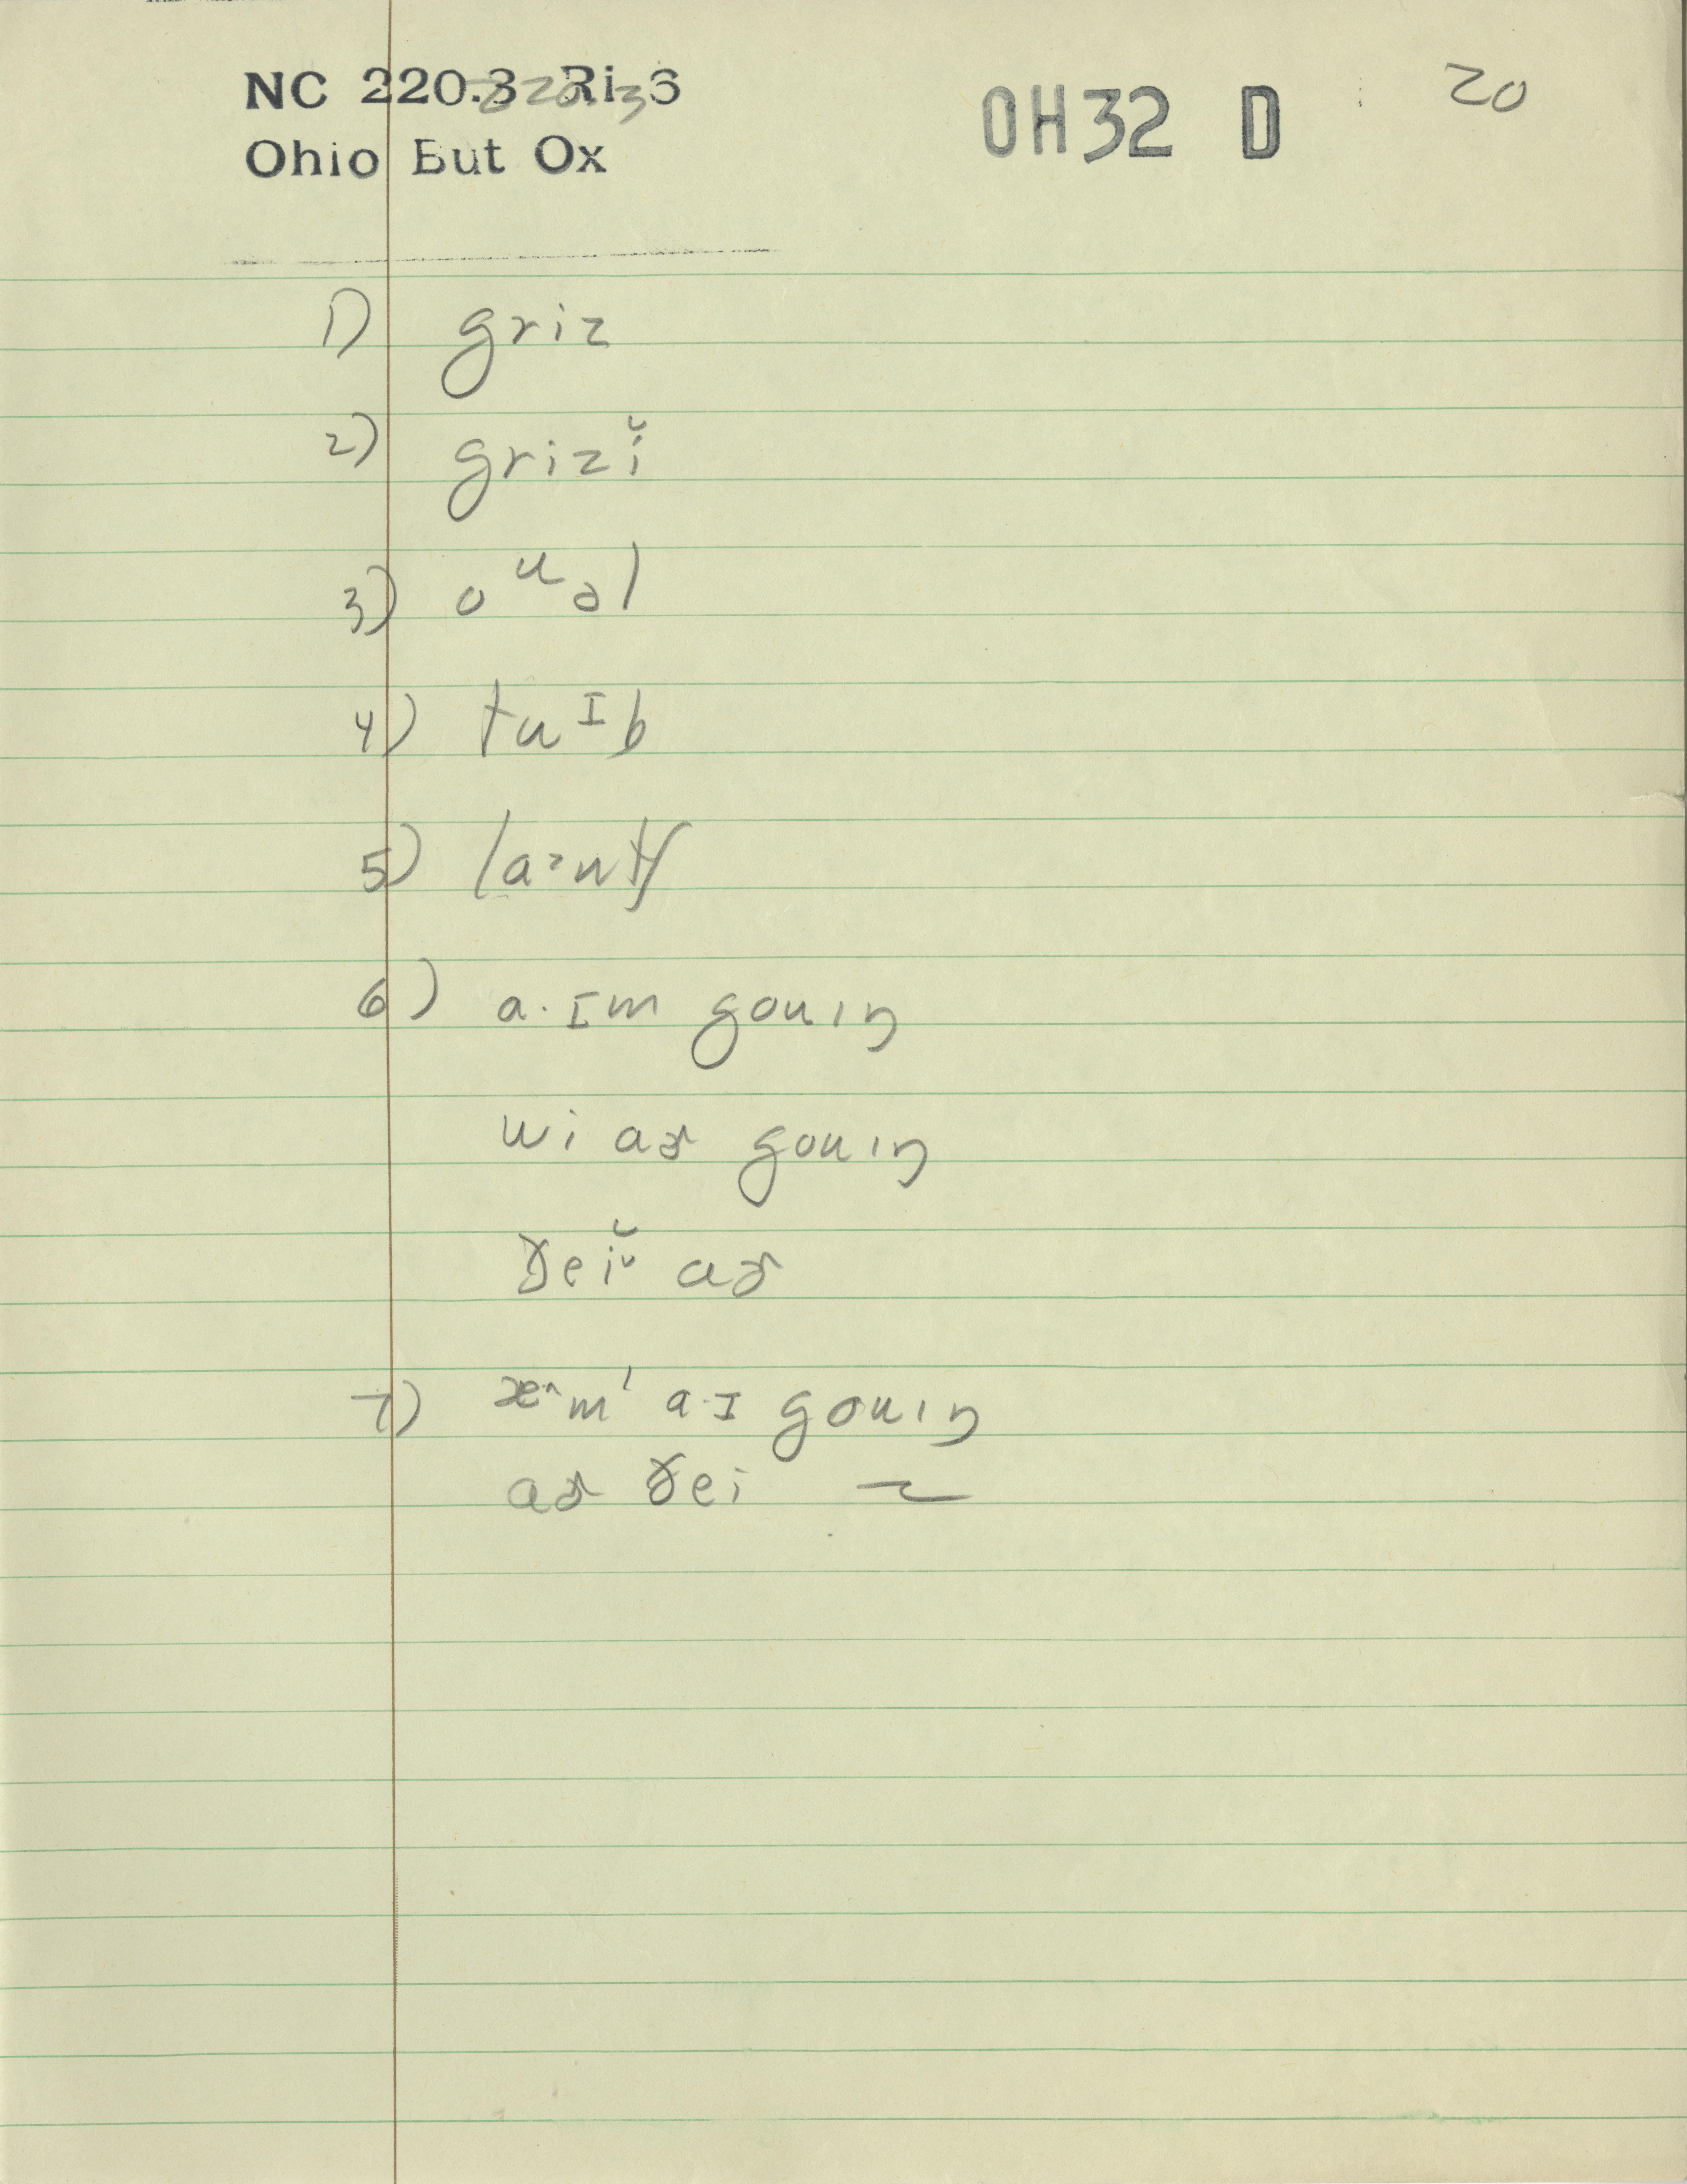 NC 220.3 Ri 3
Ohio But Ox
OH32 D 20
1) griz
2) grizĭ
3) oᵘəl
4) tuᴵb
5) laˑntʃ
6) a·ɪm gouıŋ
wi aɚ gouıŋ
ðeĭ˘ aɚ
7) æ^m' a·ɪ gouıŋ
aɚ ðei ~